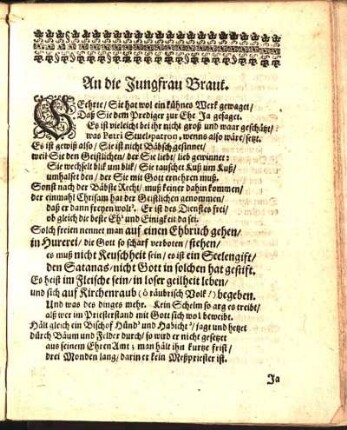 An die Jungfrau Braut.
GEehrte / Sie hat wol ein kühnes Werk gewaget /
Daß Sie dem Prediger zur Ehe Ja gesaget.
Es ist vieleicht bei ihr nicht groß und waar geschätzt /
was Petri Stuelpatron, wenns also wär / setzt.
Es ist gewiß also / Sie ist nicht Bäbsch gesinnet /
weil Sie den Geistlichen / der Sie liebt / lieb gewinnet:
Sie wechselt blik um blik / Sie tauschet Kuß um Kuß /
umhalset den / der Sie mit Gott ernehren muß.
Sonst nach der Bäbste Recht / muß keiner dahin kommen /
der einmahl Chrisam hat der Geistlichen genommen /
daß er dann freyen wolt'. Er ist des Dienstes frei /
ob gleich die beste Eh' und Einigkeit da sei.
Solch freien nennet man auf einen Ehbruch gehen /
in Hurerei / die Gott so scharf verboten / stehen /
es muß nicht Keuschheit sein / es ist ein Seelengift /
den Satanas / nicht Gott in solchen hat gestift.
Es heist im Fleische sein / in loser geilheit leben /
und sich auf Kirchenraub (ô räubrisch Volk /) begeben.
Und was des dinges mehr. Kein Schelm so arg es treibt /
alß wer im Priesterstand mit Gott sich wol beweibt.
Hält gleich ein Bischof Hünd' und Habicht' / jagt und hetzet
dürch Bäum und Felder durch / so wird er nicht gesetzet
aus seinem Ehren Amt; man hält ihn kurtze frist /
drei Monden lang / darin er kein Meßpriester ist.
Ja